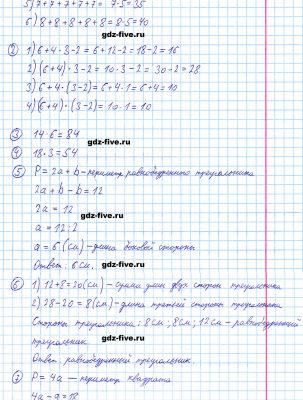 5) 7+7+7+7+7 = 7·5=35
6) 8+8+8+8+8 = 8·5=40
gdz-five.ru
② 1) 6+4·3-2 = 6+12-2=18-2=16
2) (6+4)·3-2 = 10·3-2 = 30-2=28
3) 6+4·(3-2) = 6+4·1 = 6+4=10
4) (6+4)·(3-2) = 10·1=10
③ 14·6=84
gdz-five.ru
④ 18·3=54
⑤ P = 2a+b - периметр равнобедренного треугольника
2a+b-b=12
2a = 12
gdz-five.ru
a = 12:2
a = 6 (см) - длина боковой стороны
Ответ: 6 см.
gdz-five.ru
⑥ 1) 12+8=20(см) - сумма длин двух сторон треугольника
2) 28-20=8(см) - длина третьей стороны треугольника
Стороны треугольника: 8см, 8см, 12см - равнобедренный
треугольник
gdz-five.ru
Ответ: равнобедренный треугольник.
⑦ P = 4a - периметр квадрата
4a-a=18